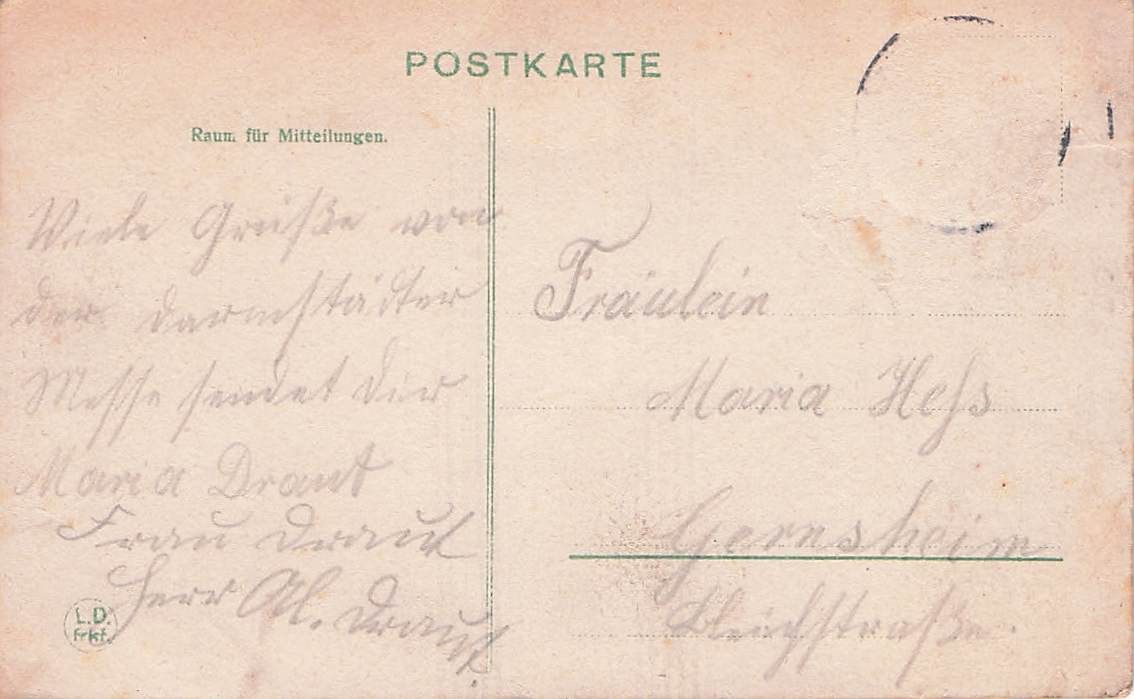 POSTKARTE
Raum für Mitteilungen.
Viele Grüße von
der Darmstädter
Messe sendet dir
Maria Draut
Frau Draut
Herr Al. Draut.
L.D.
Frkf.
Fräulein
Maria Hess
Gernsheim
Bleichstraße.